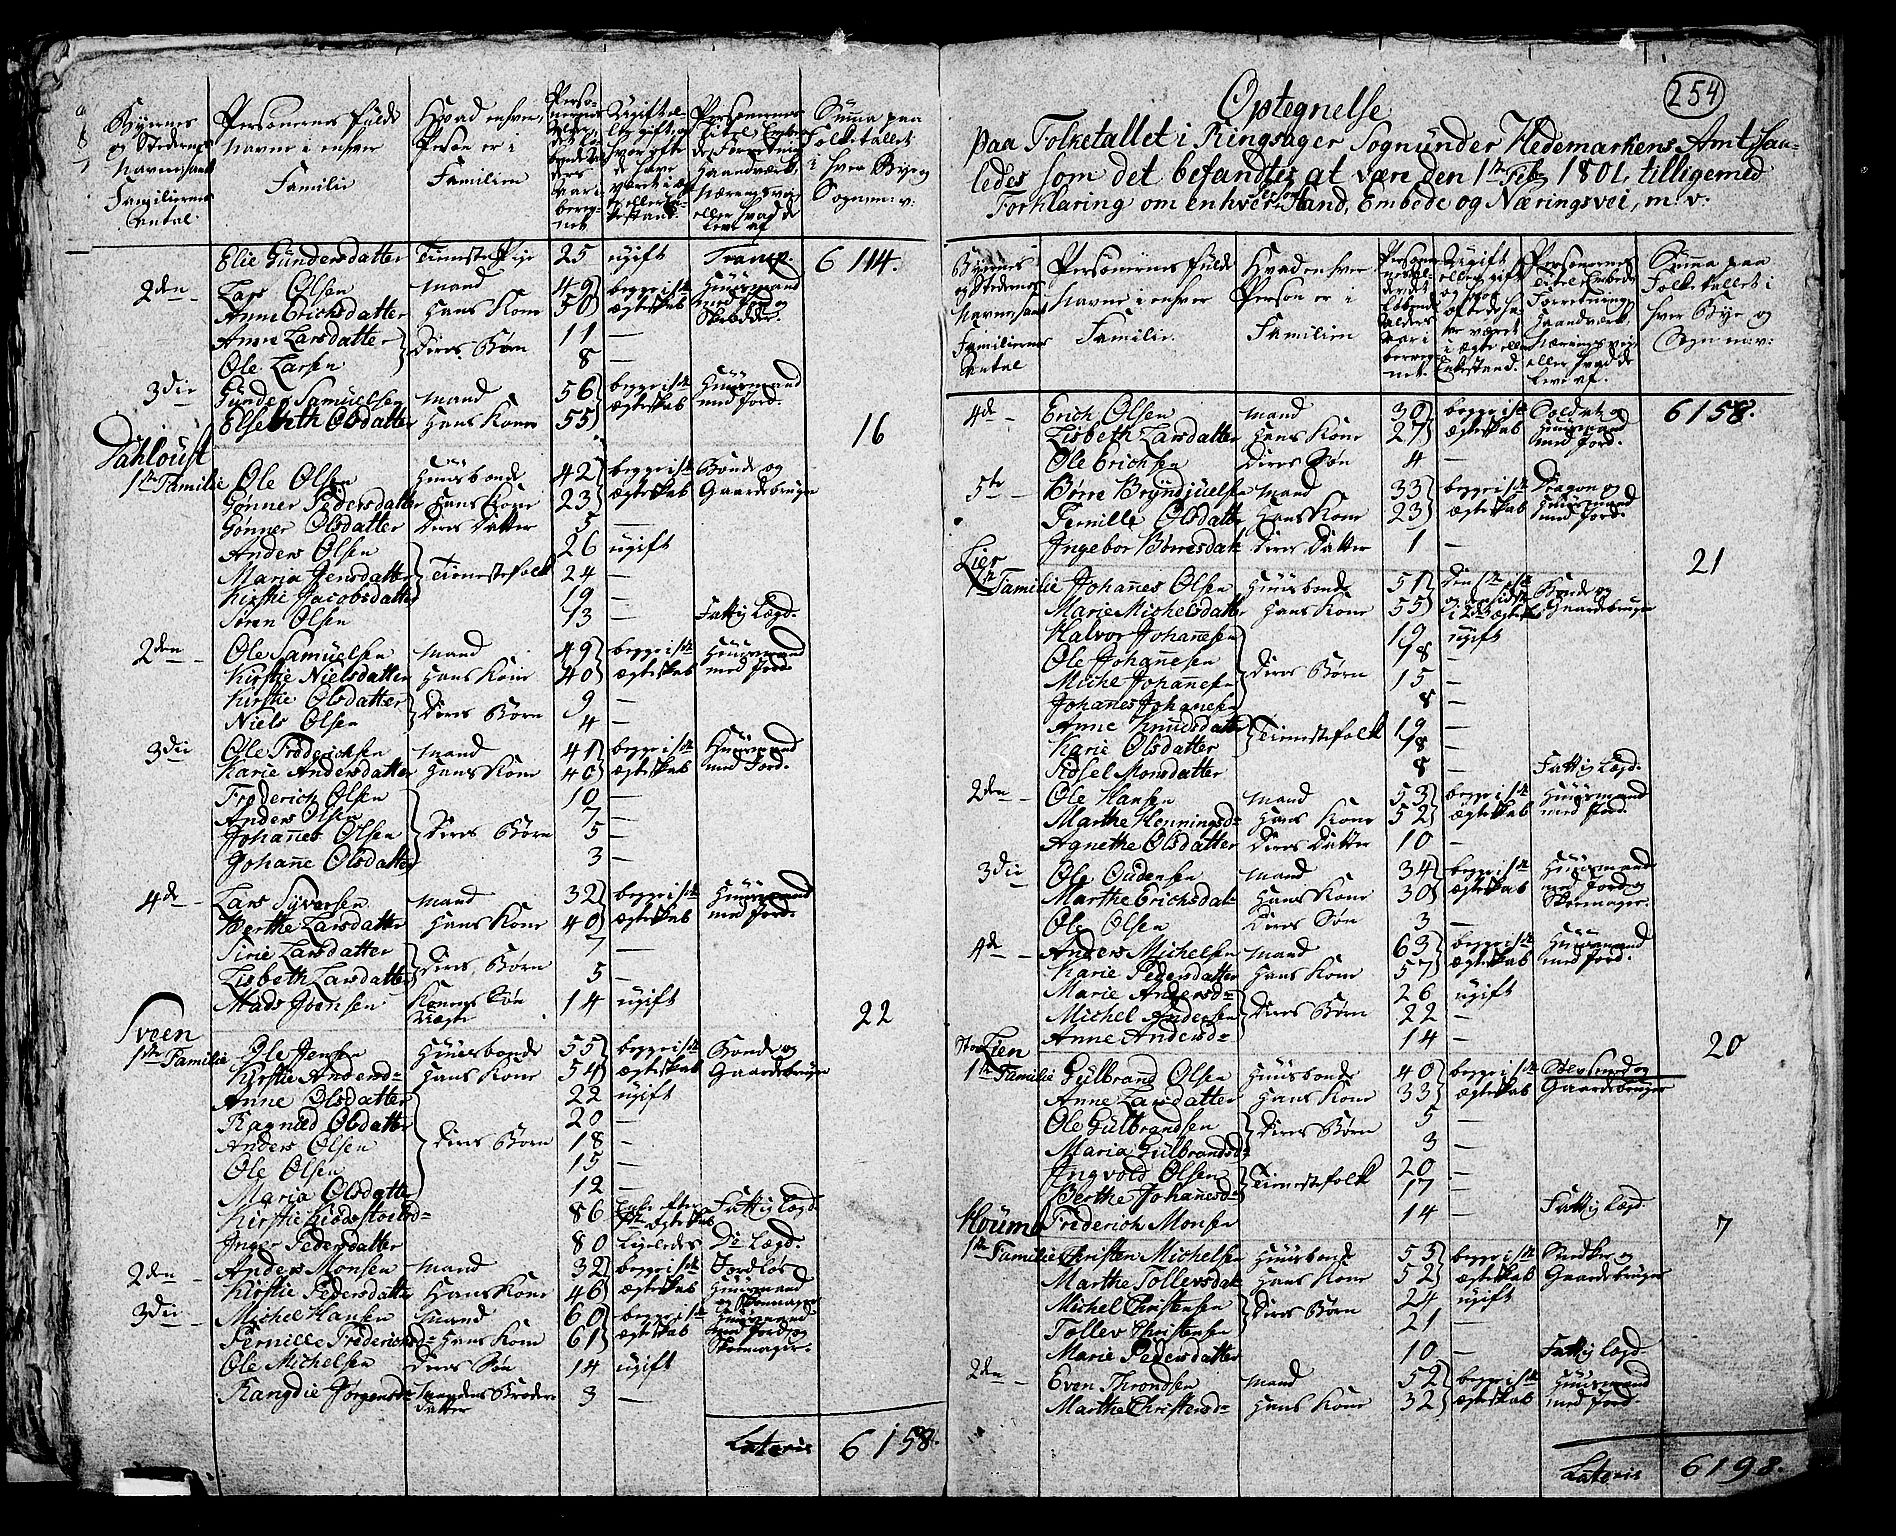 Byernes og Stedernes Navne samt Familiernes Antal.
Personernes fulde Navne i enhver Familie
Hvad enhver Person er i Familien
Summa paa Folketallet i hver Bye og Sogn m: v:
Elie Gundersdatter Tienestepige 25 ugift Transp. 6114.
2den Lars Olsen Mand 49 begge i 1ste Huusmand
Anne Erichsdatter Hans Kone 50 Ægteskab med Jord og Skrædder.
Anne Larsdatter Deres Børn 11 —
Ole Larsen 8 —
3die Gunder Samuelsen Mand 56 begge i 1ste Huusmand
Elsebeth Olsdatter Hans Kone 55 Ægteskab med Jord.
Dahloust 16
1ste Familie Ole Olsen Huusbonde 42 begge i 1ste Bonde og
Gønner Pedersdatter Hans Kone 23 Ægteskab Gaardebruger
Gønner Olsdatter Deres Datter 5 —
Anders Olsen 26 ugift
Maria Jensdatter Tienestefolk 24 —
Kirstie Jacobsdatter 19 —
Søren Olsen 13 — Fattig Lægd.
2den Ole Samuelsen Mand 49 begge i 1ste Huusmand
Kirstie Nielsdatter Hans Kone 40 Ægteskab med Jord.
Kirstie Olsdatter Deres Børn 9 —
Niels Olsen 4 —
3die Ole Froderichsen Mand 41 begge i 1ste Huusmand
Karie Andersdatter Hans Kone 40 Ægteskab med Jord.
Froderich Olsen 10 —
Anders Olsen 7 —
Johannes Olsen Deres Børn 5 —
Johanne Olsdatter 3 —
4de Lars Syversen Mand 32 begge i 1ste Huusmand
Berthe Larsdatter Hans Kone 40 Ægteskab med Jord.
Sirie Larsdatter 7 —
Lisbeth Larsdatter Deres Børn 5 —
Mads Joensen Konens Søn Uægte 14 ugift
Sveen 22
1ste Familie Ole Jensen Huusbonde 55 begge i 1ste Bonde og
Kirstie Andersd= Hans Kone 54 Ægteskab Gaardebruger
Anne Olsdatter 22 ugift
Ragnild Olsdatter 20 —
Anders Olsen Deres Børn 18 —
Ole Olsen 15 —
Maria Olsdatter 12 —
86 Enke efter 1ste Ægteskab Fattig Lægd
Inger Pedersdatter 80 Ligeledes Do Lægd.
2den Anders Monsen Mand 32 begge i 1ste Jordløs
Kirstie Pedersdatter Hans Kone 46 Ægteskab Huusmand og Skomager
3die Michel Hansen Mand 60 begge i 1ste Huusmand
Pernille Friderichsd= Hans Kone 61 Ægteskab med Jord og Skomager.
Ole Michelsen Deres Søn 14 ugift
Rangdie Jørgensd= Mandens Broder Datter 3 —
Lateris 6158.
254
Optegnelse
paa Folketallet i Ringsager Sogn under Hedemarkens Amt, saa-
ledes som det befandtes at være den 1ste Feb: 1801, tilligemed
Forklaring om enhvers Stand, Embede og Næringsvei, m. v.
Byernes og Stedernes Navne samt Familiernes Antal
Personernes fulde Navne i enhver Familie.
Hvad enhver Person er i Familien
Summa paa Folketallet i hver Bye og Sogn m: v:
4de Erich Olsen Mand 30 begge i 1ste Soldat og 6158.
Lisbeth Larsdatter Hans Kone 27 Ægteskab Huusmand med Jord.
Ole Erichsen Deres Søn 4 —
5te Børre Bryndjuelsen Mand 33 begge i 1ste Dragon og
Pernille Olsdatter Hans Kone 23 Ægteskab Huusmand med Jord.
Ingebor Børresdat: Deres Datter 1 —
Lier 21
1ste Familie Johannes Olsen Huusbonde 51 Den 1ste i 1ste Bonde og
Marie Michelsdatter Hans Kone 55 og den sidste i 2det Ægteskab Gaardebruger
Halvor Johannesen 19 ugift
Ole Johannesen 18 —
Michel Johannesen Deres Børn 15 —
Johanes Johanesen 8 —
Anne Knudsdatter Tienestefolk 19 —
Karie Olsdatter 18 —
Sidsel Monsdatter 8 — Fattig Lægd.
2den Ole Hansen Mand 53 begge i 1ste Huusmand
Marthe Henningsd= Hans Kone 52 Ægteskab med Jord.
Agnethe Olsdatter Deres Datter 10 —
3die Ole Oudensen Mand 34 begge i 1ste Huusmand
Marthe Erichsdat: Hans Kone 30 Ægteskab med Jord og Skomager.
Ole Olsen Deres Søn 3 —
4de Anders Michelsen Mand 63 begge i 1ste Huusmand
Karie Pedersdatter Hans Kone 57 Ægteskab med Jord.
Marie Andersd= 26 ugift
Michel Andersen Deres Børn 22 —
Anne Andersd= 14 —
Store Lien 20
1ste Familie Gulbrand Olsen Huusbonde 40 begge i 1ste og
Anne Larsdatter Hans Kone 33 Ægteskab Gaardebruger
Ole Gulbrandsen Deres Børn 5 —
Maria Gulbrandsd= 3 —
Ingvold Olsen Tienestefolk 20 —
Berthe Johannesd= 17 —
Friderich Monsen 14 — Fattig Lægd.
Houm 7
1ste Familie Christen Michelsen Huusbonde 53 begge i 1ste Snedker og
Marthe Tollevsdat: Hans Kone 52 Ægteskab Gaardebruger
Michel Christensen Deres Børn 24 ugift
Tollev Christensen 21 —
Marie Pedersdatter 10 — Fattig Lægd
2den Even Throndsen Mand 52 begge i 1ste Huusmand
Marthe Christensd= Hans Kone 32 Ægteskab med Jord.
Lateris 6198.